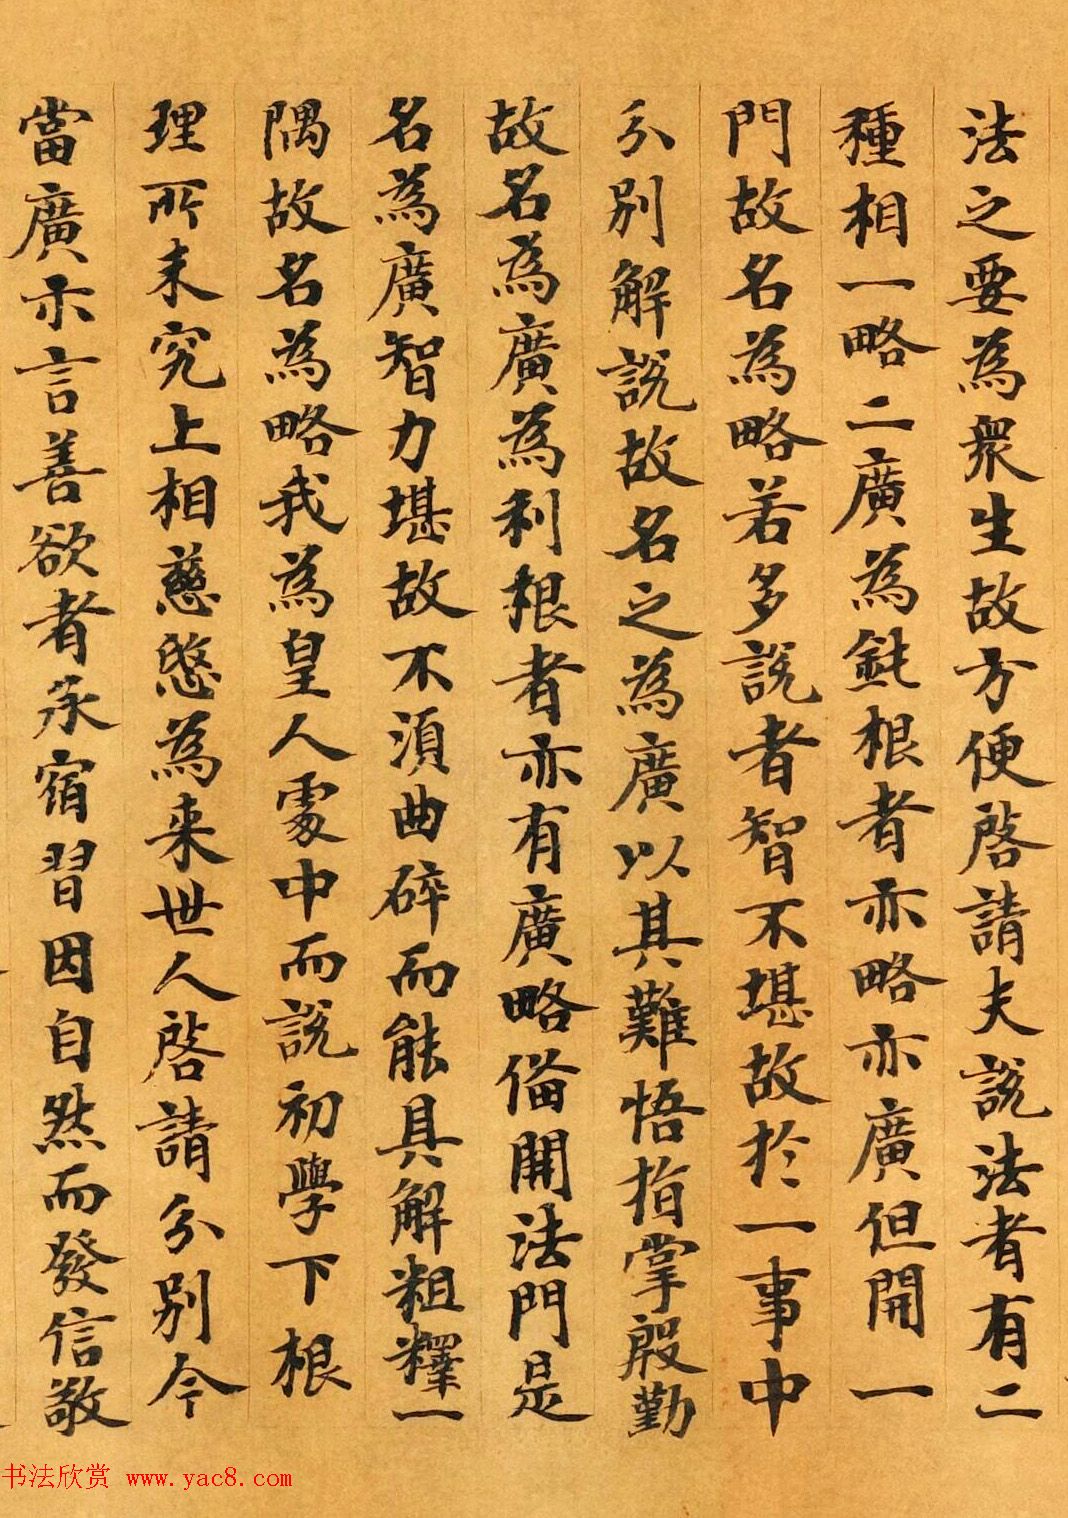 法之要為眾生故方便啓請夫說法者有二
種相一略二廣為鈍根者亦略亦廣但開一
門故名為略若多說者智不堪故於一事中
分別解說故名之為廣以其難悟指掌殷勤
故名為廣為利根者亦有廣略俻開法門是
名為廣智力堪故不須曲碎而能具解粗釋一
隅故名為略我為皇人處中而說初學下根
理所未究上相慈愍為来世人啓請分別今
當廣示言善欲者承宿習因自然而發信敬
书法欣赏 www.yac8.com